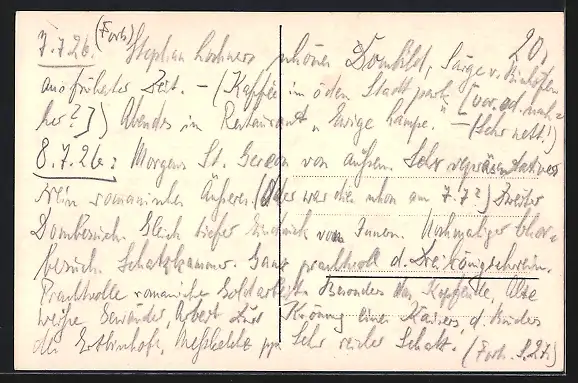 20.
7.7.26. (Forts.) Stephan Lochners schönes Dombild, Särge v. Bischöfen
aus früherer Zeit. – (Kaffee im öden Stadtpark [vor od. nach-
her?]) Abends in Restaurant „Ewige Lampe". – (Sehr nett!)
8.7.26.: Morgens St. Gereon von außen. Sehr repräsentatives
rein romanisches Äußeres. (Oder war dies schon am 7.7?) Zweiter
Dombesuch. Gleich tiefer Eindruck vom Innern. Nochmaliger Chor-
besuch. Schatzkammer. Ganz prachtvoll d. Dreikönigschrein.
Prachtvolle romanische Goldarbeit. Besonders die Kopfende. Alte
weiße Gewänder, Arbeit zur Krönung eines Kaisers d. Bruders
des Erzbischofs, Meßkelche pp. Sehr reicher Schatz. (Forts. S. 21)